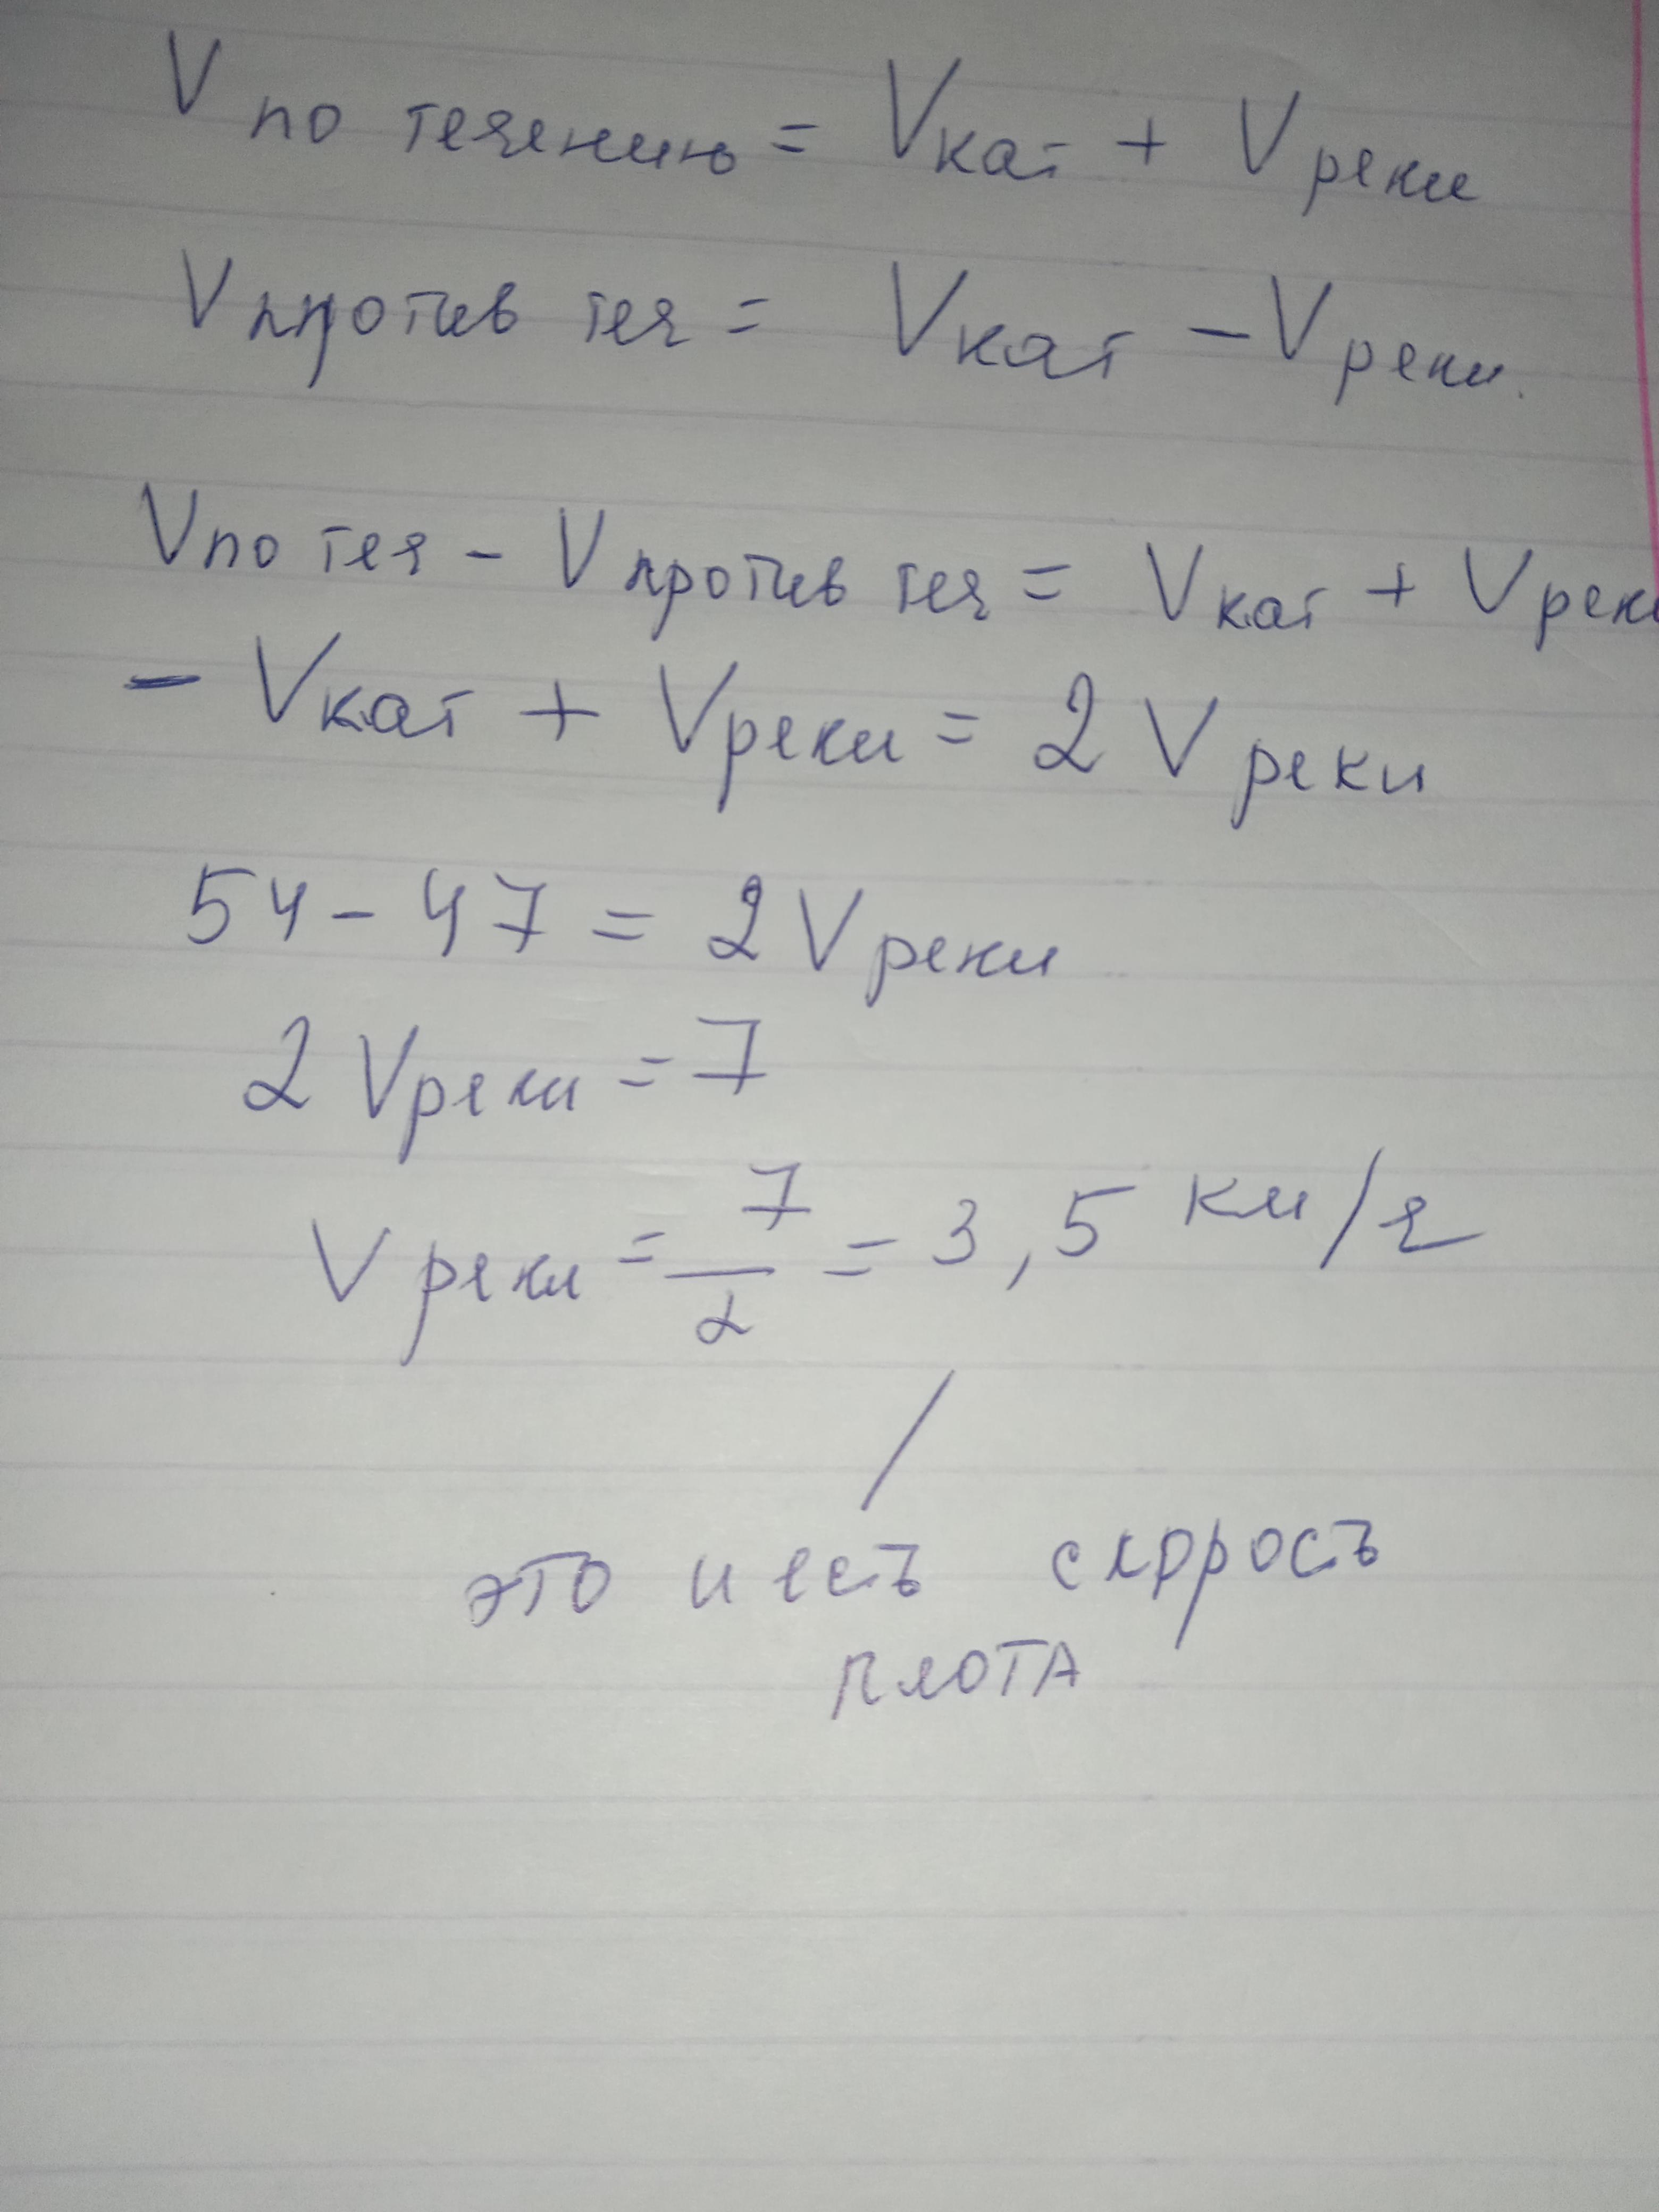 V по течению = Vкат + Vреки
Vпротив теч = Vкат - Vреки.
Vпо теч - Vпротив теч = Vкат + Vреки
- Vкат + Vреки = 2 Vреки
54 - 47 = 2 Vреки
2 Vреки = 7
Vреки = 7/2 = 3,5 км/ч
это и есть скорость
плота